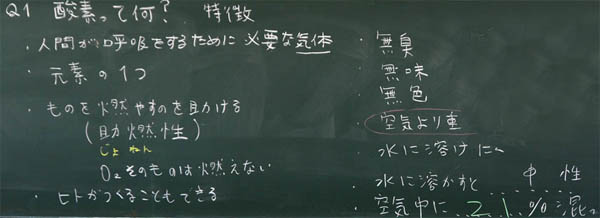 Q1 酸素って何? 特徴
・人間が呼吸をするために必要な気体
・元素の1つ
・ものを燃やすのを助ける
(助燃性)
じょねん
O₂そのものは燃えない
・ヒトがつくることもできる
・無臭
・無味
・無色
・空気より重
・水に溶けに
・水に溶かすと 中性
・空気中に 21%混